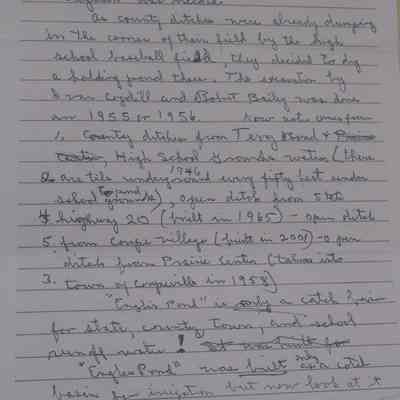 As county ditches were already dumping
in the corner of their field by the high
school baseball field, they decided to dig
a holding pond there. The excavation by
Ivan and Robert Baily was done
in 1955 or 1956. Now water comes from
1. County ditches from Terry Road &
High School Grounds water (there
2. are tile underground every fifty feet under
1946
school grounds), open ditch from
4 highway 20 (built in 1965) - open ditch
5. from Coupe Village (built in 2001) - open
ditch from Prairie Center (taken into
3. town of Coupeville in 1958)
"Engles Pond" is only a catch
for state, county, town, and school
runoff water! It was built for
"Engles Pond" was built only as a catch
basin for irrigation but now look at it